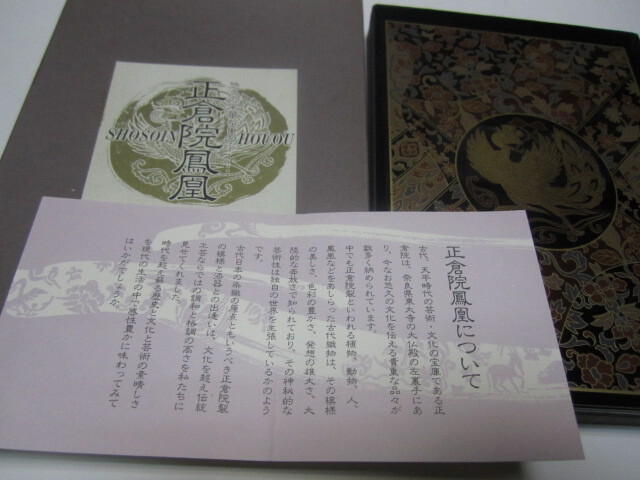 正倉院鳳凰
SHOSOIN HOUOU
正倉院鳳凰について
古代、天平時代の芸術・文化の宝庫である正
倉院は、奈良県東大寺の大仏殿の左裏手にあ
り、今なお悠久の文化を伝える貴重な品々が
数多く納められています。
中でも正倉院裂といわれる植物、動物、人、
鳳凰などをあしらった古代織物は、その模様
の美しさ、色彩の豊かさ、発想の雄大さ、大
陸的な奔放さで知られており、その神秘的な
芸術性は独自の世界を主張しているかのよう
です。
古代日本の糸織の原点ともいうべき正倉院裂
の模様と漆器との出逢いは、文化を超え伝統
工芸ならではの調和と格調の高さを私たちに
見せてくれました。
時代を超え蘇る歴史と文化と芸術の素晴しさ
を現代の生活の中で感性豊かに味わってみて
はいかがでしょうか。